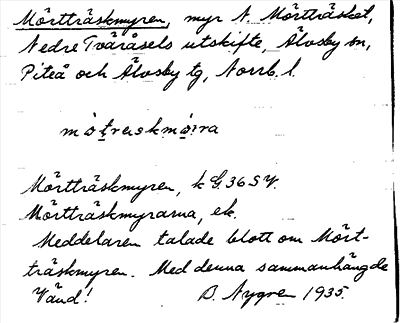 Mörtträskmyren, myr N. Mörtträsket,
Nedre Tväråsels utskifte, Älvsby sn,
Piteå och Älvsby tg, Norrb. l.
Mörtträskmyren, k G. 36 SV.
Mörtträskmyrarna, ek.
Meddelaren talade blott om Mört-
träskmyren. Med denna sammanhängde
Vänd! B. Nygren 1935.